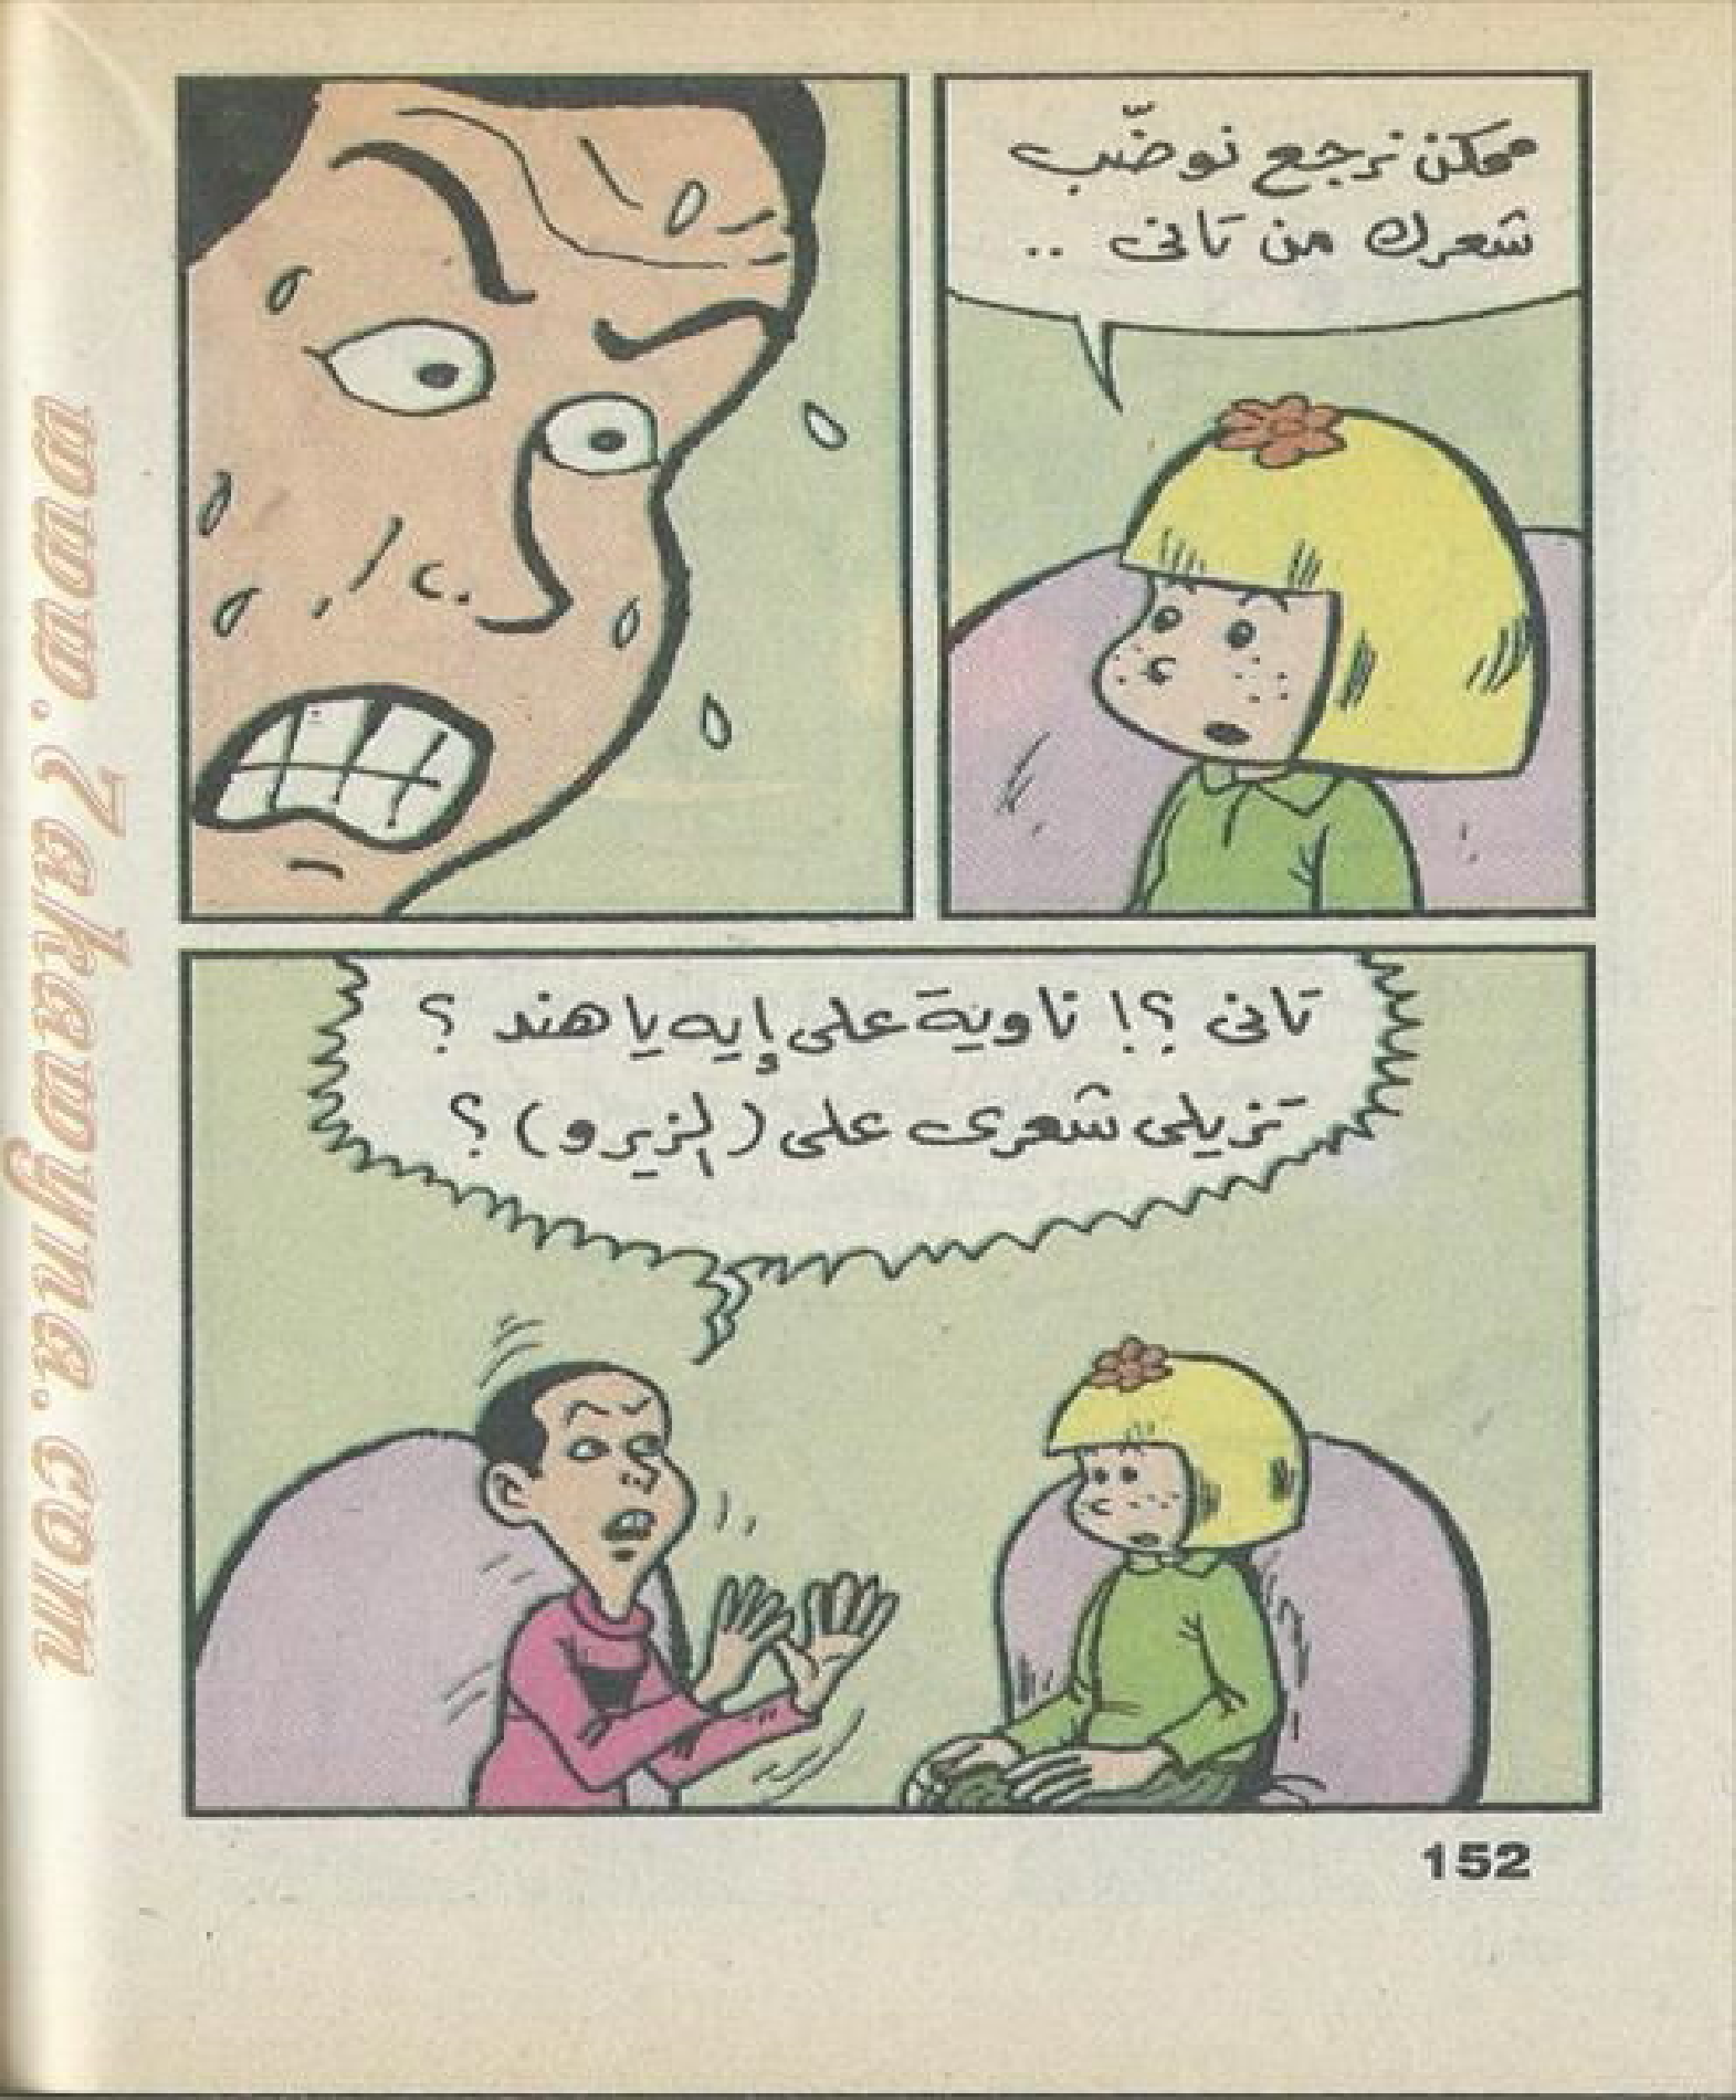 ممكن نرجع نوضّب
شعرك من تانى ..
تانى ؟! ناوية على إيه يا هند ؟
تزيلى شعرى على (الزيرو) ؟
152
www.7akawyna.com